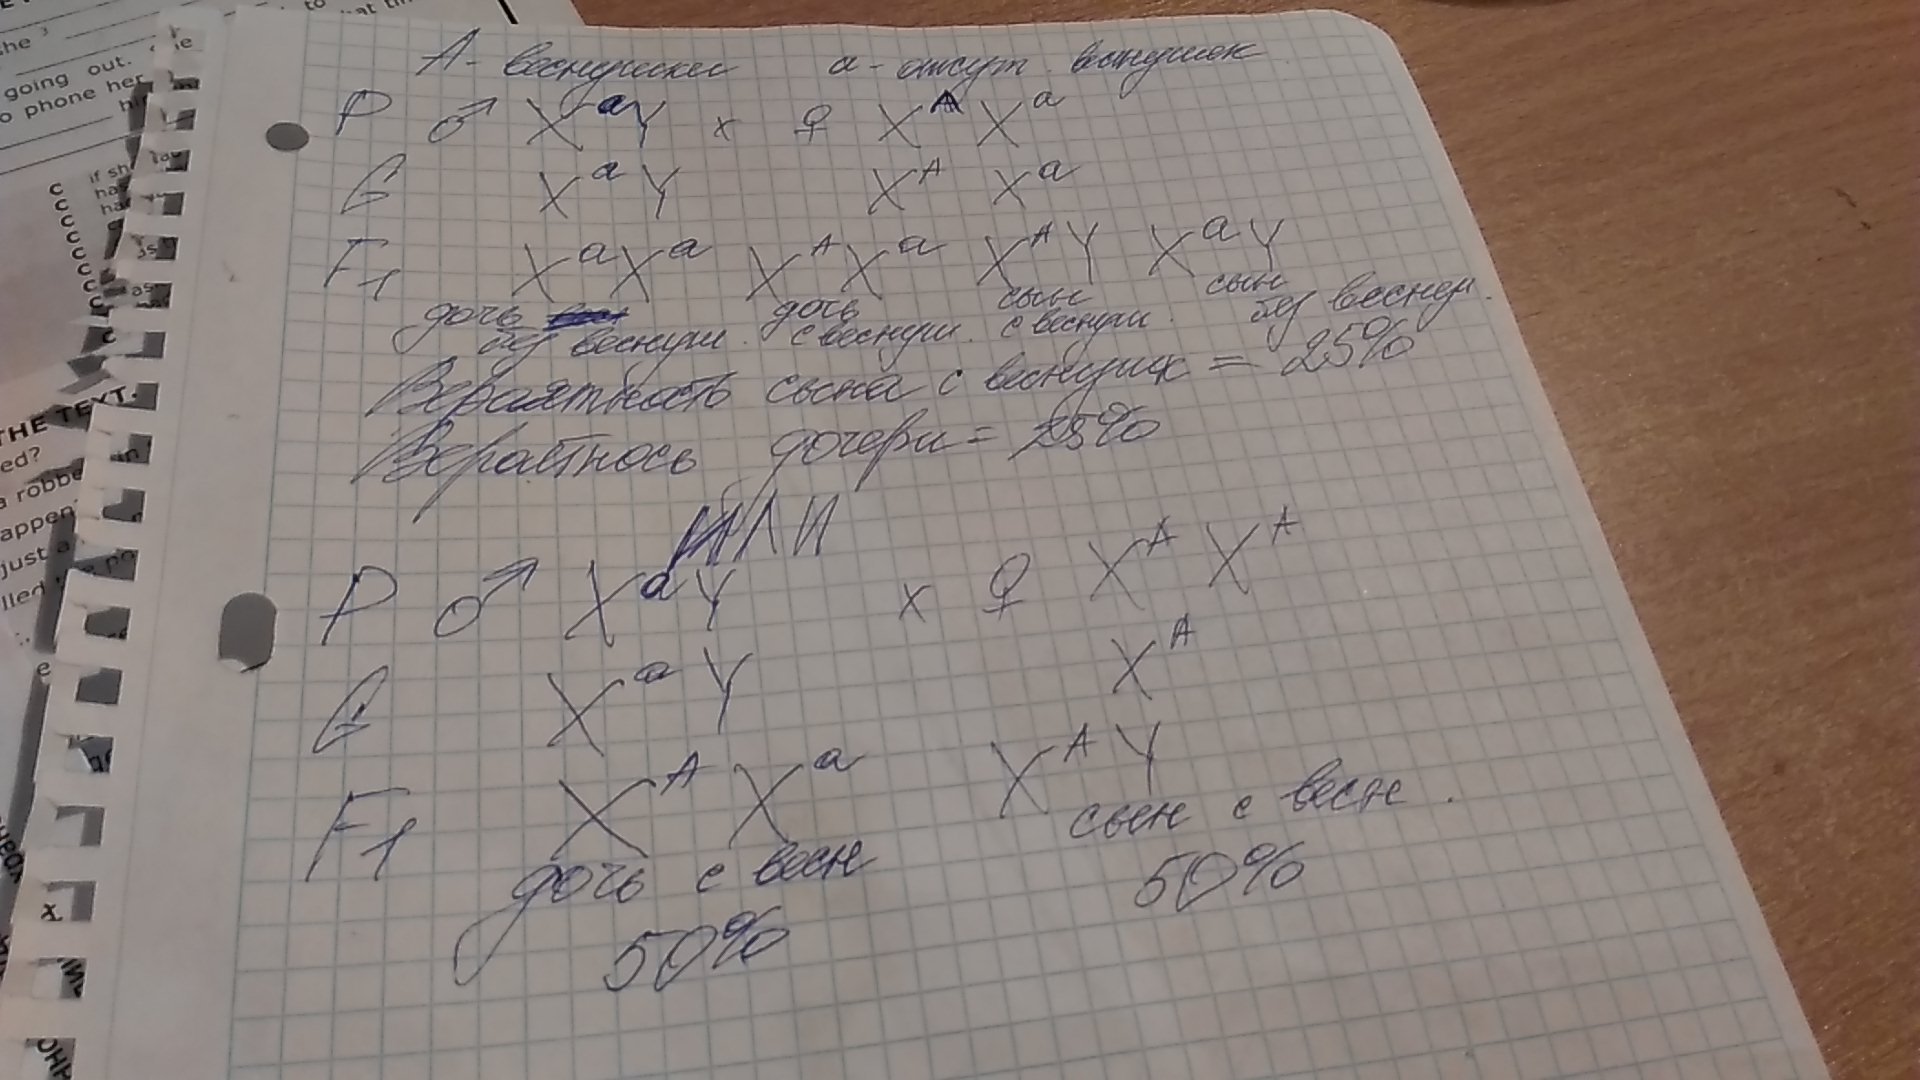 the 3
going out. She
o phone her
if sh
ha
ha
c
c
c
c
c
c
c
c
c
as
THE TEXT.
ed?
a robbe
appen
just a
x
А - веснушки а - отсут. веснушек
P ♂ XᵃY x ♀ Xᴬ Xᵃ
G Xᵃ Y Xᴬ Xᵃ
F₁ XᵃXᵃ XᴬXᵃ XᴬY XᵃY
дочь дочь сын сын
без веснуш. с веснуш. с веснуш. без веснуш.
Вероятность сына с веснушк = 25%
Вероятнось дочери = 25%
ИЛИ
P ♂ XᵃY x ♀ Xᴬ Xᴬ
G Xᵃ Y Xᴬ
F₁ Xᴬ Xᵃ XᴬY
дочь с весн сын с весн.
50% 50%